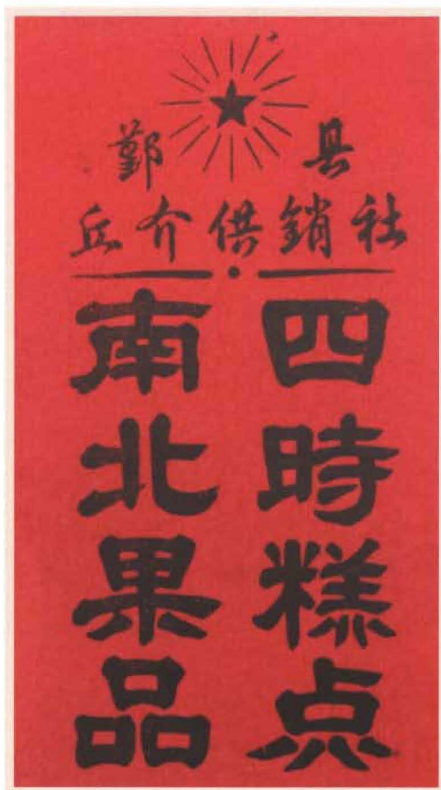 鄞县
丘介供銷社
四時糕点
南北果品